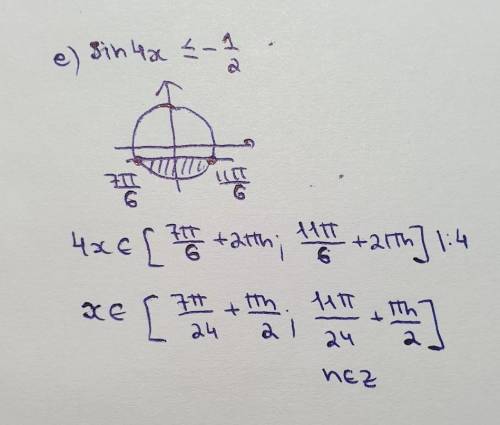 e) sin4x ≤ -1/2
7π/6 11π/6
4x ∈ [7π/6 + 2πn; 11π/6 + 2πn] |:4
x ∈ [7π/24 + πn/2; 11π/24 + πn/2]
n∈z